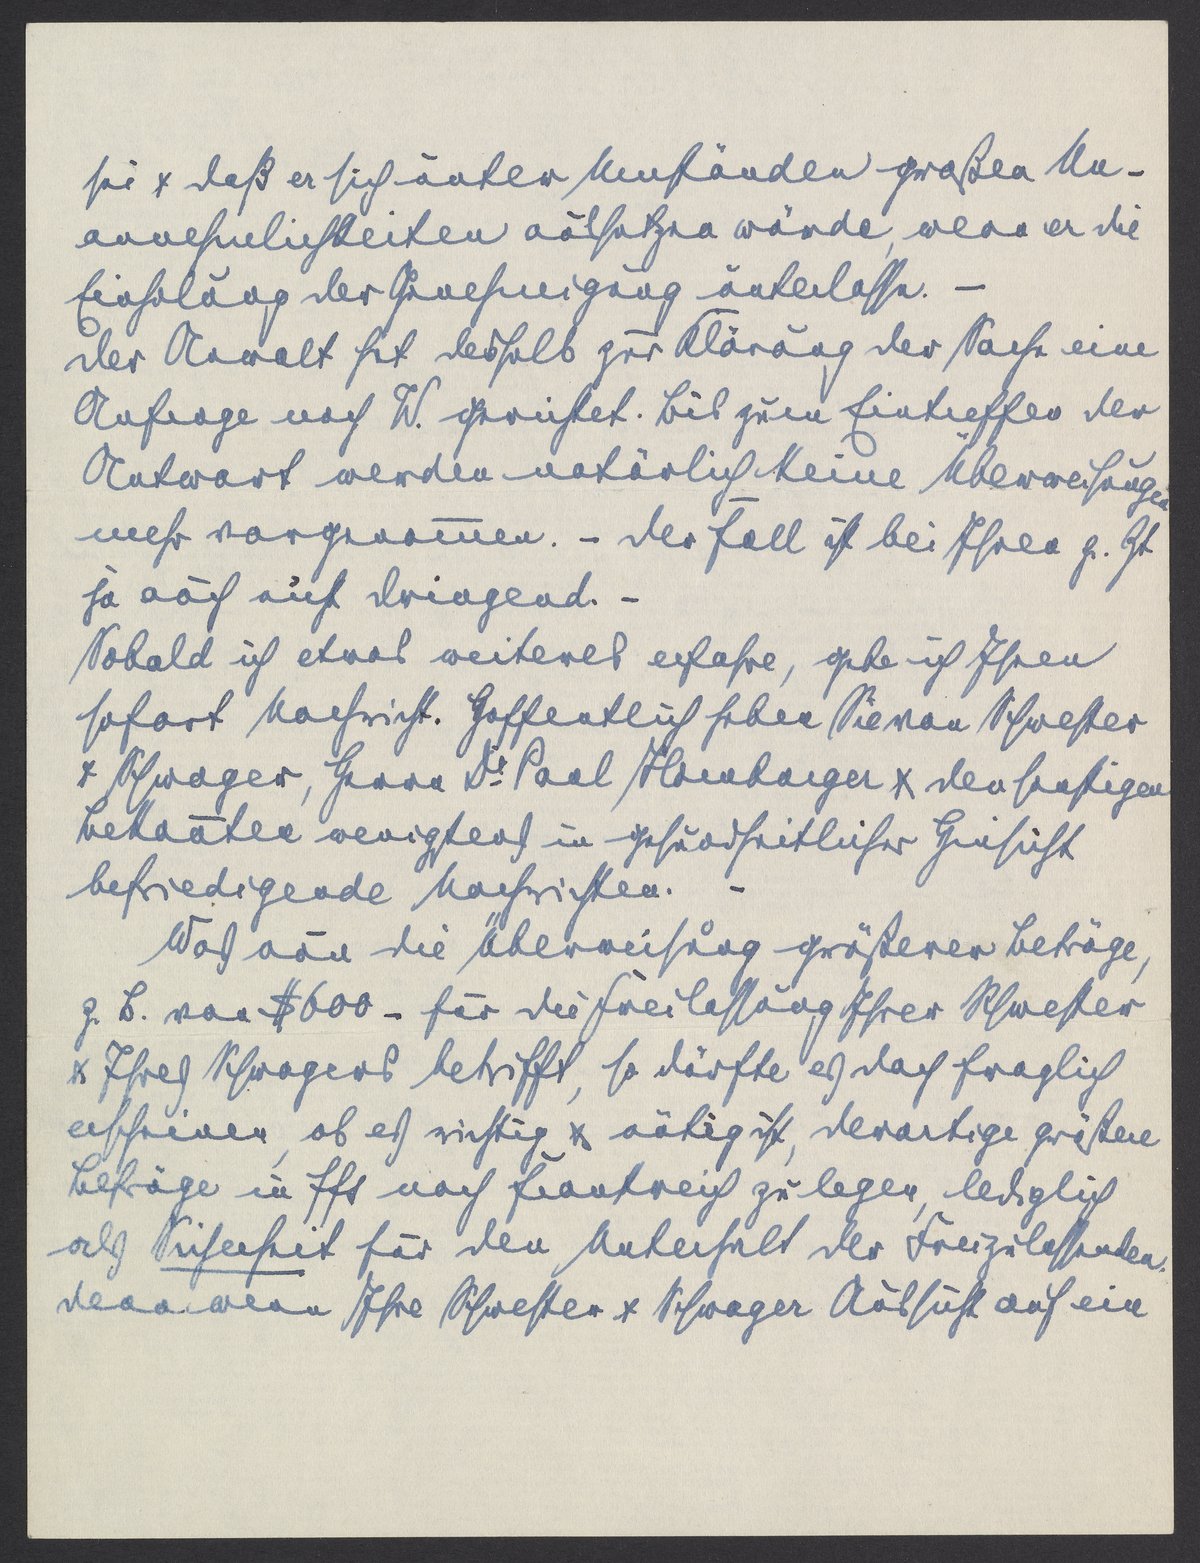 sei & daß er sich unter Umständen großen Un-
annehmlichkeiten aussetzen würde, wenn er die
Einholung der Genehmigung unterlasse. –
Der Anwalt hat deshalb zur Klärung der Sache eine
Anfrage nach W. gerichtet. Bis zum Eintreffen der
Antwort werden natürlich keine Überweisungen
mehr vorgenom̅en. – Der Fall ist bei Ihnen z. Zt
ja auch nicht dringend. –
Sobald ich etwas weiteres erfahre, gebe ich Ihnen
sofort Nachricht. Hoffentlich haben Sie von Schwester
& Schwager, Herrn Dr. Paul Homburger & den sonstigen
Bekan̅ten wenigstens in gesundheitlicher Hinsicht
befriedigende Nachrichten. –
Was nun die Überweisung größerer Beträge,
z. B. von $600 – für die Freilassung Ihrer Schwester
& Ihres Schwagers betrifft, so dürfte es doch fraglich
erscheinen, ob es richtig & nötig ist, derartige größere
Beträge in ffs nach Frankreich zu legen, lediglich
als Sicherheit für den Unterhalt der Freizulassenden.
denn wenn Ihre Schwester & Schwager Aussicht auf ein